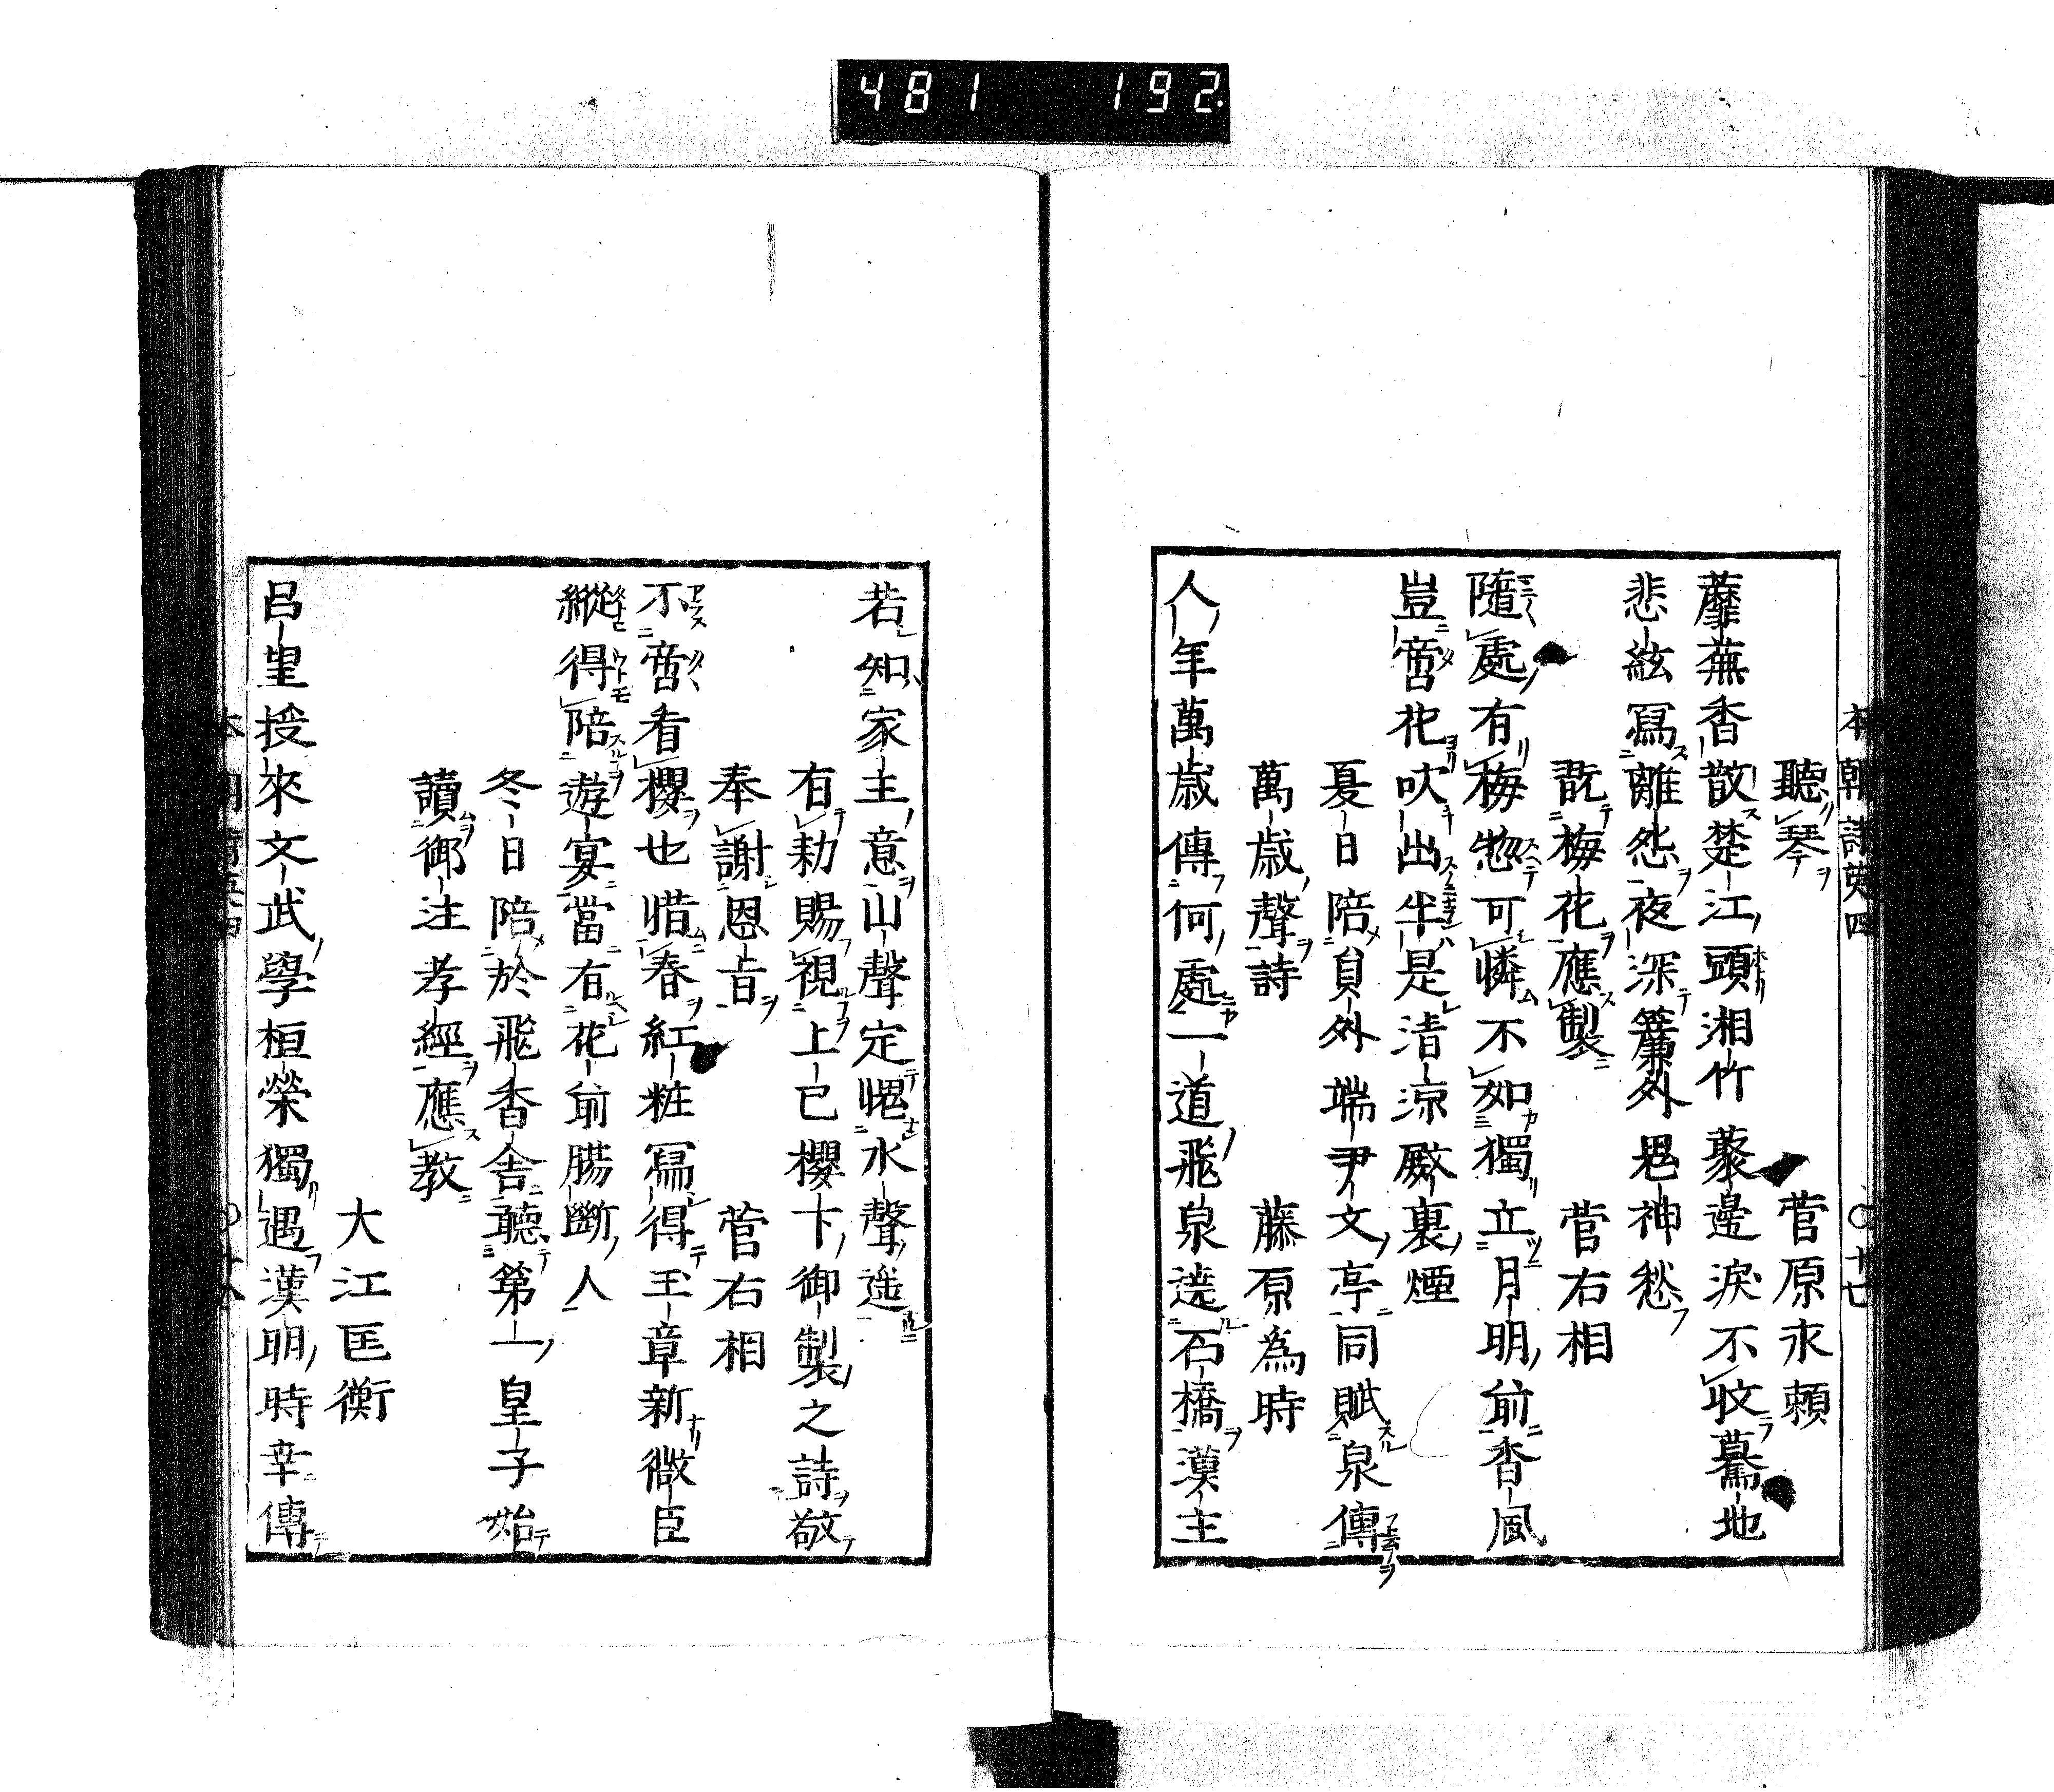 481 192
本朝詩英四 〇十七
聽琴 菅原永頼
蘼蕪香散楚江頭湘竹叢邊淚不收驀地
悲絃寫離怨夜深簾外鬼神愁
翫梅花應製 菅右相
隨處有梅惣可憐不如獨立月明前香風
豈啻花吹出半是清涼殿裏煙
夏日陪員外端尹文亭同賦泉傳
萬歲聲詩 藤原為時
人年萬歲傳何處一道飛泉遶石橋漢主
若知家主意山聲定愧水聲遥
有勅賜視上巳櫻下御製之詩敬
奉謝恩旨 菅右相
不啻看櫻也惜春紅粧寫得玉章新微臣
縱得陪遊宴當有花前腸斷人
冬日陪於飛香舍聽第一皇子始
讀御注孝經應教
大江匡衡
呂望授來文武學桓榮獨遇漢明時幸傳